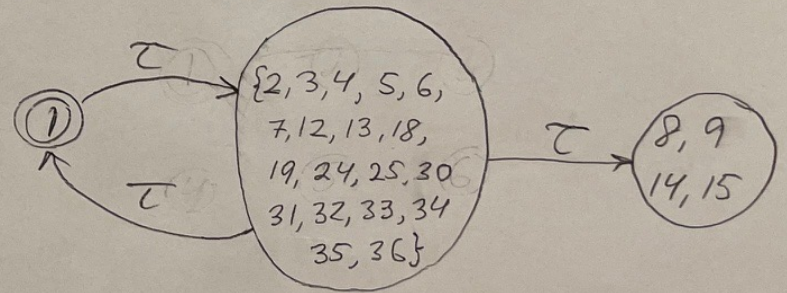 τ
1
{2, 3, 4, 5, 6,
7, 12, 13, 18,
19, 24, 25, 30
31, 32, 33, 34
35, 36}
τ
τ
8, 9
14, 15